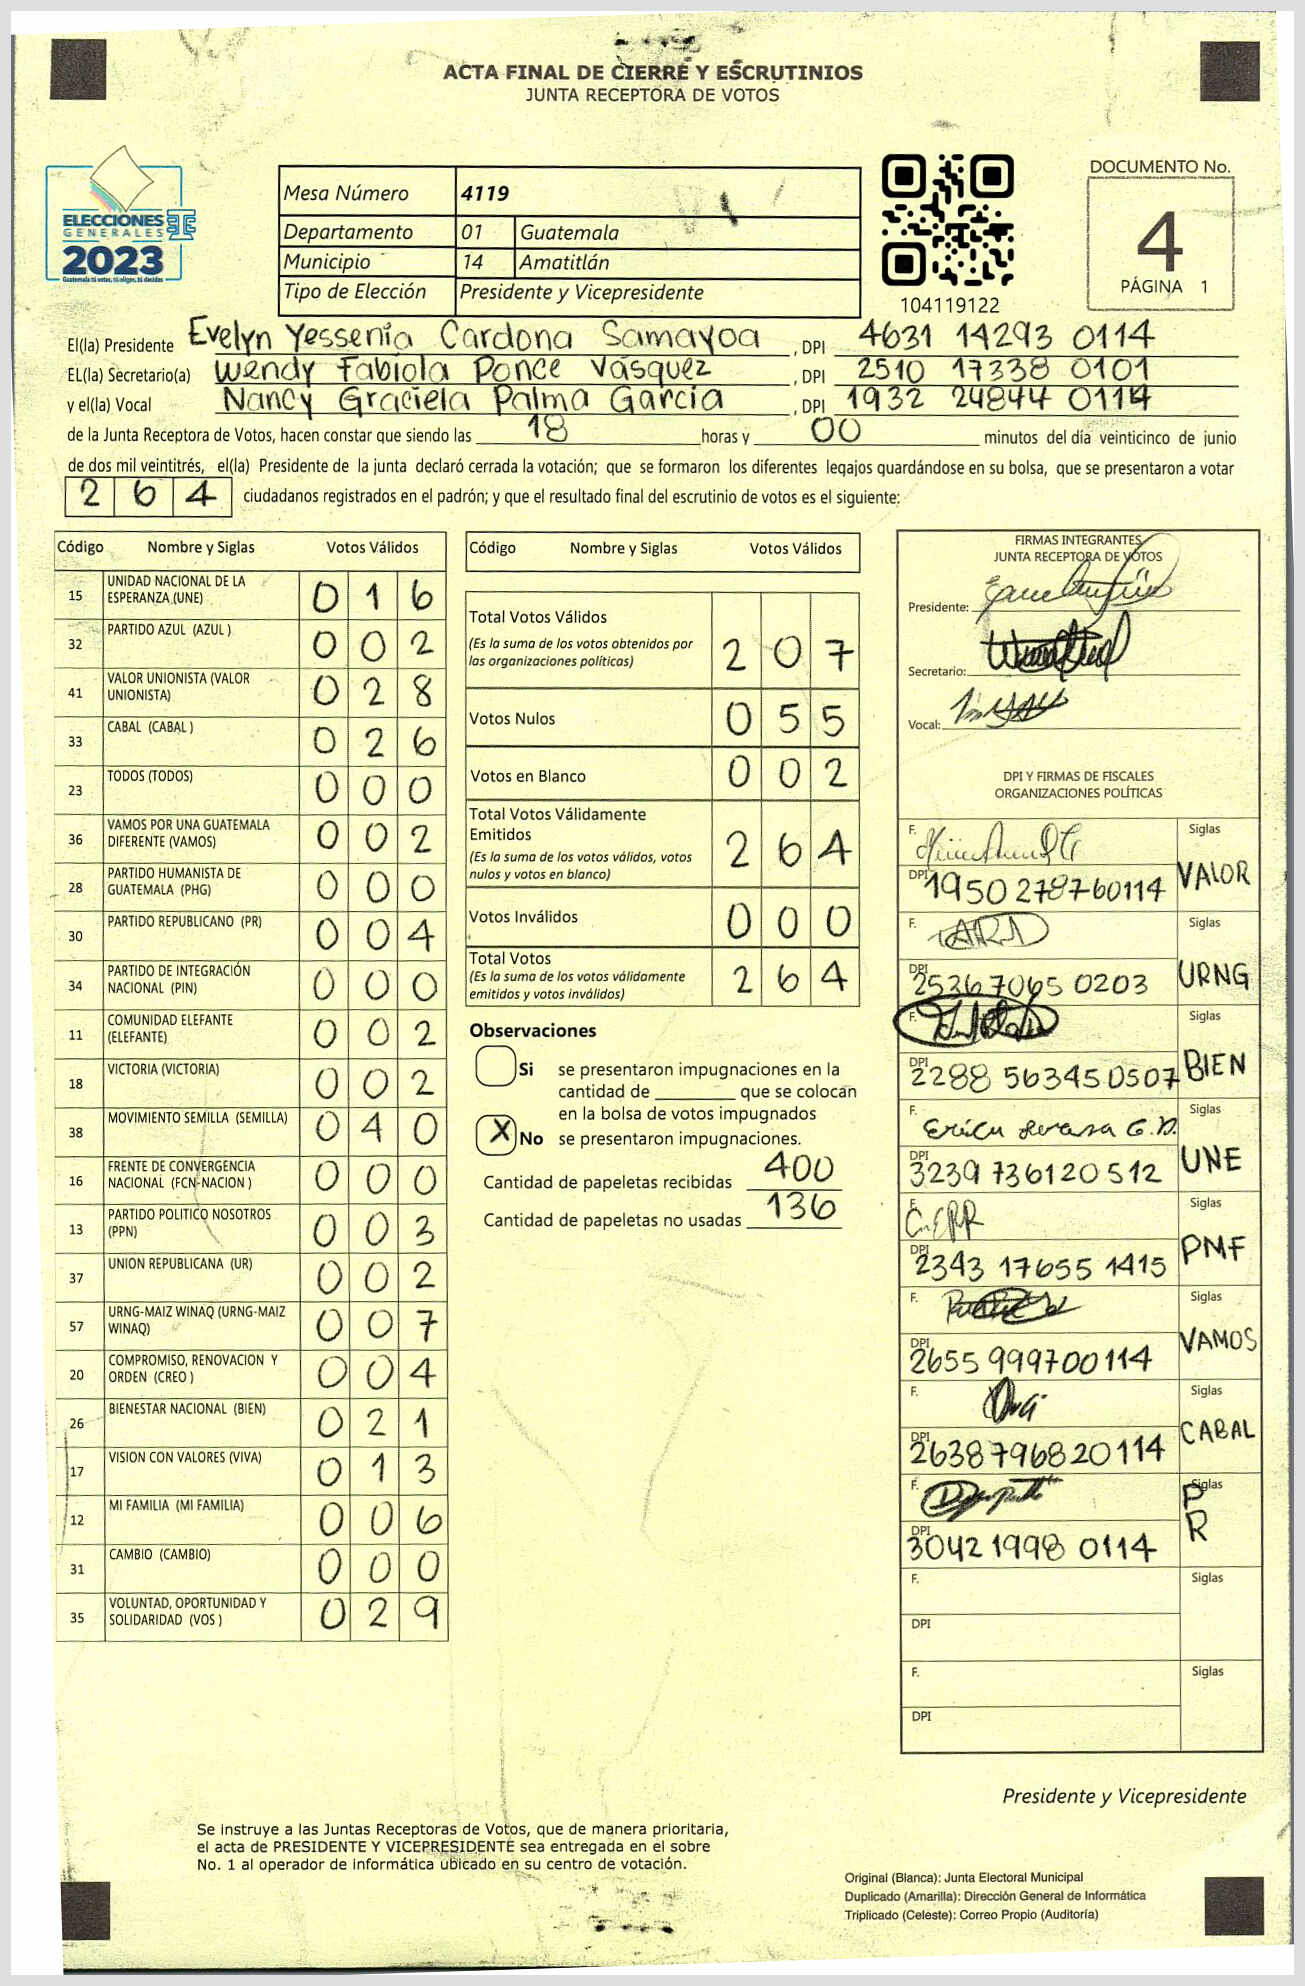 ACTA FINAL DE CIERRE Y ESCRUTINIOS
JUNTA RECEPTORA DE VOTOS
ELECCIONES
GENERALES
2023
Guatemala tú votas, tú eliges, tú decides
Mesa Número 4119
Departamento 01 Guatemala
Municipio 14 Amatitlán
Tipo de Elección Presidente y Vicepresidente
104119122
DOCUMENTO No.
4
PÁGINA 1
El(la) Presidente Evelyn Yessenia Cardona Samayoa , DPI 4631 14293 0114
EL(la) Secretario(a) Wendy Fabiola Ponce Vásquez , DPI 2510 17338 0101
y el(la) Vocal Nancy Graciela Palma García , DPI 1932 24844 0114
de la Junta Receptora de Votos, hacen constar que siendo las 18 horas y 00 minutos del día veinticinco de junio
de dos mil veintitrés, el(la) Presidente de la junta declaró cerrada la votación; que se formaron los diferentes legajos guardándose en su bolsa, que se presentaron a votar
264 ciudadanos registrados en el padrón; y que el resultado final del escrutinio de votos es el siguiente:
Código Nombre y Siglas Votos Válidos
15 UNIDAD NACIONAL DE LA ESPERANZA (UNE) 016
32 PARTIDO AZUL (AZUL ) 002
41 VALOR UNIONISTA (VALOR UNIONISTA) 028
33 CABAL (CABAL ) 026
23 TODOS (TODOS) 000
36 VAMOS POR UNA GUATEMALA DIFERENTE (VAMOS) 002
28 PARTIDO HUMANISTA DE GUATEMALA (PHG) 000
30 PARTIDO REPUBLICANO (PR) 004
34 PARTIDO DE INTEGRACIÓN NACIONAL (PIN) 000
11 COMUNIDAD ELEFANTE (ELEFANTE) 002
18 VICTORIA (VICTORIA) 002
38 MOVIMIENTO SEMILLA (SEMILLA) 040
16 FRENTE DE CONVERGENCIA NACIONAL (FCN-NACION ) 000
13 PARTIDO POLITICO NOSOTROS (PPN) 003
37 UNION REPUBLICANA (UR) 002
57 URNG-MAIZ WINAQ (URNG-MAIZ WINAQ) 007
20 COMPROMISO, RENOVACION Y ORDEN (CREO ) 004
26 BIENESTAR NACIONAL (BIEN) 021
17 VISION CON VALORES (VIVA) 013
12 MI FAMILIA (MI FAMILIA) 006
31 CAMBIO (CAMBIO) 000
35 VOLUNTAD, OPORTUNIDAD Y SOLIDARIDAD (VOS ) 029
Código Nombre y Siglas Votos Válidos
Total Votos Válidos
(Es la suma de los votos obtenidos por las organizaciones políticas) 207
Votos Nulos 055
Votos en Blanco 002
Total Votos Válidamente Emitidos
(Es la suma de los votos válidos, votos nulos y votos en blanco) 264
Votos Inválidos 000
Total Votos
(Es la suma de los votos válidamente emitidos y votos inválidos) 264
Observaciones
Si se presentaron impugnaciones en la
cantidad de ________ que se colocan
en la bolsa de votos impugnados
X No se presentaron impugnaciones.
Cantidad de papeletas recibidas 400
Cantidad de papeletas no usadas 136
FIRMAS INTEGRANTES
JUNTA RECEPTORA DE VOTOS
Presidente:
Secretario:
Vocal:
DPI Y FIRMAS DE FISCALES
ORGANIZACIONES POLÍTICAS
F. Siglas
DPI 1950 278760114 VALOR
F. Siglas
DPI 2536 7065 0203 URNG
F. Siglas
DPI 2288 56345 0507 BIEN
F. Siglas
DPI 3239 73612 0512 UNE
F. Siglas
DPI 2343 17655 1415 PMF
F. Siglas
DPI 2655 99970 0114 VAMOS
F. Siglas
DPI 2638 79682 0114 CABAL
F. Siglas
DPI 3042 1998 0114 PR
F. Siglas
DPI
F. Siglas
DPI
Presidente y Vicepresidente
Se instruye a las Juntas Receptoras de Votos, que de manera prioritaria,
el acta de PRESIDENTE Y VICEPRESIDENTE sea entregada en el sobre
No. 1 al operador de informática ubicado en su centro de votación.
Original (Blanca): Junta Electoral Municipal
Duplicado (Amarilla): Dirección General de Informática
Triplicado (Celeste): Correo Propio (Auditoría)